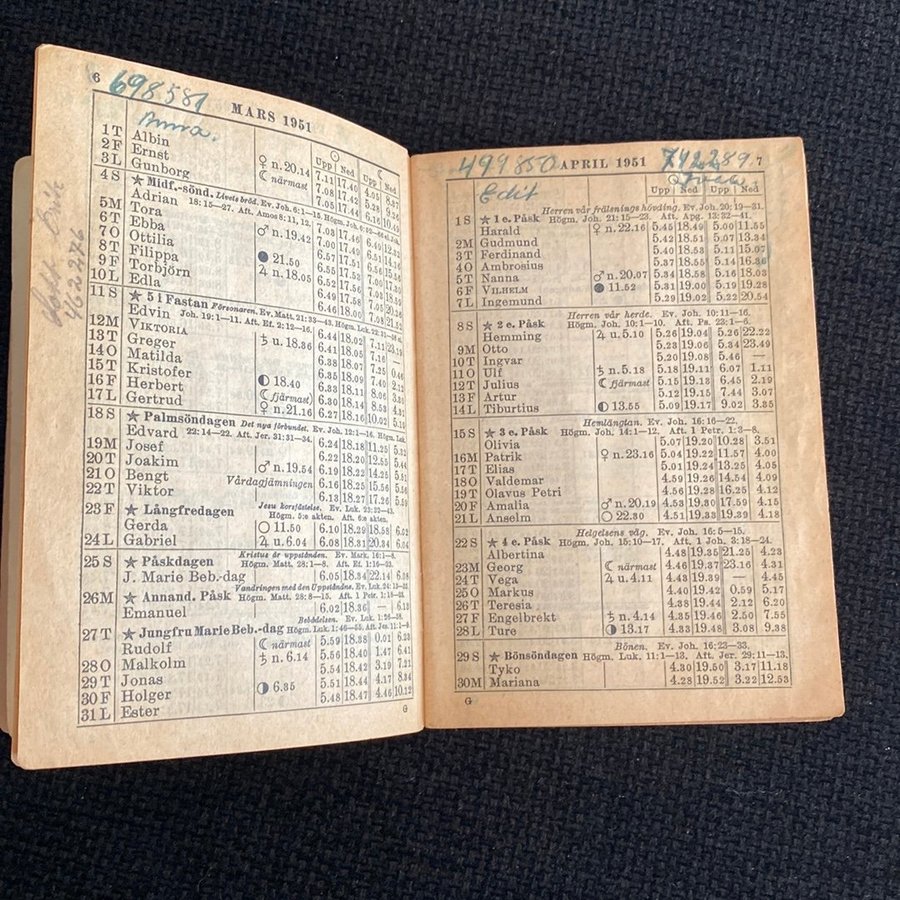 6 698581
MARS 1951
Anna.
Upp Ned Upp Ned
1 T Albin 7.11 17.40 4.05 8.37
2 F Ernst ♀ n. 20.14 7.08 17.42 5.29 9.36
3 L Gunborg ☾ närmast 7.05 17.44 6.16 10.49
4 S ★ Midf.-sönd. Livets bröd. Ev. Joh. 6:1—15. Högm. Joh.
Adrian 18:15—27. Aft. Amos 8:11, 12. 7.03 17.46 6.49
5 M Tora ♂ n. 19.42 7.00 17.49
6 T Ebba 6.57
7 O Ottilia ● 21.50
8 T Filippa ♃ n. 18.05
9 F Torbjörn 6.49 17.56
10 L Edla 6.46 18.00
11 S ★ 5 i Fastan Försonaren. Ev. Matt. 21:33—43. Högm. Luk.
Edvin Joh. 19:1—11. Aft. Ef. 2:12—16. 6.44 18.02 7.11
12 M VIKTORIA ♄ u. 18.36 6.41 18.05 7.16 —
13 T Greger 6.38 18.07
14 O Matilda 6.35 18.09 7.40
15 T Kristofer ◐ 18.40 6.33 18.11 8.06
16 F Herbert ☾ fjärmast 6.30 18.14 8.53
17 L Gertrud ♀ n. 21.16 6.27 18.16 10.02
18 S ★ Palmsöndagen Det nya förbundet. Ev. Joh. 12:1—16. Högm. Luk.
Edvard 22:14—22. Aft. Jer. 31:31—34. 6.24 18.18 11.25
19 M Josef 6.22 18.20 12.55 5.44
20 T Joakim ♂ n. 19.54 6.19 18.22 14.25
21 O Bengt Vårdagjämningen 6.16 18.25 15.56
22 T Viktor 6.13 18.27 17.26
23 F ★ Långfredagen Jesu korsfästelse. Ev. Luk. 23:32—43.
Högm. 5:e akten. Aft. 6:e akten.
Gerda ○ 11.50 6.10 18.29 18.58 6.02
24 L Gabriel ♃ u. 6.04 6.08 18.31 20.34 6.04
25 S ★ Påskdagen Kristus är uppstånden. Ev. Mark. 16:1—8.
Högm. Matt. 28:1—8. Aft. Ef. 1:16—23.
J. Marie Beb.-dag 6.05 18.34 22.14 6.08
Vandringen med den Uppståndne. Ev. Luk. 24:13—
26 M ★ Annand. Påsk Högm. Matt. 28:8—15. Aft. 1 Petr. 1:18—23.
Emanuel 6.02 18.36 — 6.13
Bebådelsen. Ev. Luk. 1:26—38.
27 T ★ Jungfru Marie Beb.-dag Högm. Luk. 1:46—55. Aft. Jes. 11:1—
Rudolf ☾ närmast 5.59 18.38 0.01 6.23
28 O Malkolm ♄ n. 6.14 5.56 18.40 1.47 6.41
29 T Jonas 5.54 18.42 3.19 7.21
30 F Holger ◑ 6.35 5.51 18.44 4.17 8.34
31 L Ester 5.48 18.47 4.46 10.12
G
462276
499850 APRIL 1951 742289. 7
Edit
Upp Ned Upp Ned
Herren vår frälsnings hövding. Ev. Joh. 20:19—31.
1 S ★ 1 e. Påsk Högm. Joh. 21:15—23. Aft. Apg. 13:32—41.
Harald ♀ n. 22.16 5.45 18.49 5.00 11.55
2 M Gudmund 5.42 18.51 5.07 13.34
3 T Ferdinand 5.40 18.53 5.12
4 O Ambrosius 5.37 18.55 5.14 16.36
5 T Nanna ♂ n. 20.07 5.34 18.58 5.16 18.03
6 F VILHELM ● 11.52 5.31 19.00 5.19 19.28
7 L Ingemund 5.29 19.02 5.22 20.54
Herren vår herde. Ev. Joh. 10:11—16.
8 S ★ 2 e. Påsk Högm. Joh. 10:1—10. Aft. Ps. 23:1—6.
Hemming ♃ u. 5.10 5.26 19.04 5.26 22.22
9 M Otto 5.23 19.06 5.34 23.49
10 T Ingvar 5.20 19.08 5.46 —
11 O Ulf ♄ n. 5.18 5.18 19.11 6.07 1.11
12 T Julius ☾ fjärmast 5.15 19.13 6.45 2.19
13 F Artur 5.12 19.15 7.44 3.07
14 L Tiburtius ◐ 13.55 5.09 19.17 9.02 3.35
Hemlängtan. Ev. Joh. 16:16—22.
15 S ★ 3 e. Påsk Högm. Joh. 14:1—12. Aft. 1 Petr. 1:3—8.
Olivia 5.07 19.20 10.28 3.51
16 M Patrik ♀ n. 23.16 5.04 19.22 11.57 4.00
17 T Elias 5.01 19.24 13.25 4.05
18 O Valdemar 4.59 19.26 14.54 4.09
19 T Olavus Petri 4.56 19.28 16.25 4.12
20 F Amalia ♂ n. 20.19 4.53 19.30 17.59 4.15
21 L Anselm ○ 22.30 4.51 19.33 19.39 4.18
Helgelsens väg. Ev. Joh. 16:5—15.
22 S ★ 4 e. Påsk Högm. Joh. 15:10—17. Aft. 1 Joh. 3:18—24.
Albertina 4.48 19.35 21.25 4.23
23 M Georg ☾ närmast 4.46 19.37 23.16 4.31
24 T Vega ♃ u. 4.11 4.43 19.39 — 4.45
25 O Markus 4.40 19.42 0.59 5.17
26 T Teresia 4.38 19.44 2.12 6.20
27 F Engelbrekt ♄ n. 4.14 4.35 19.46 2.50 7.55
28 L Ture ◑ 13.17 4.33 19.48 3.08 9.38
Bönen. Ev. Joh. 16:23—33.
29 S ★ Bönsöndagen Högm. Luk. 11:1—13. Aft. Jer. 29:11—13.
Tyko 4.30 19.50 3.17 11.18
30 M Mariana 4.28 19.52 3.22 12.53
G